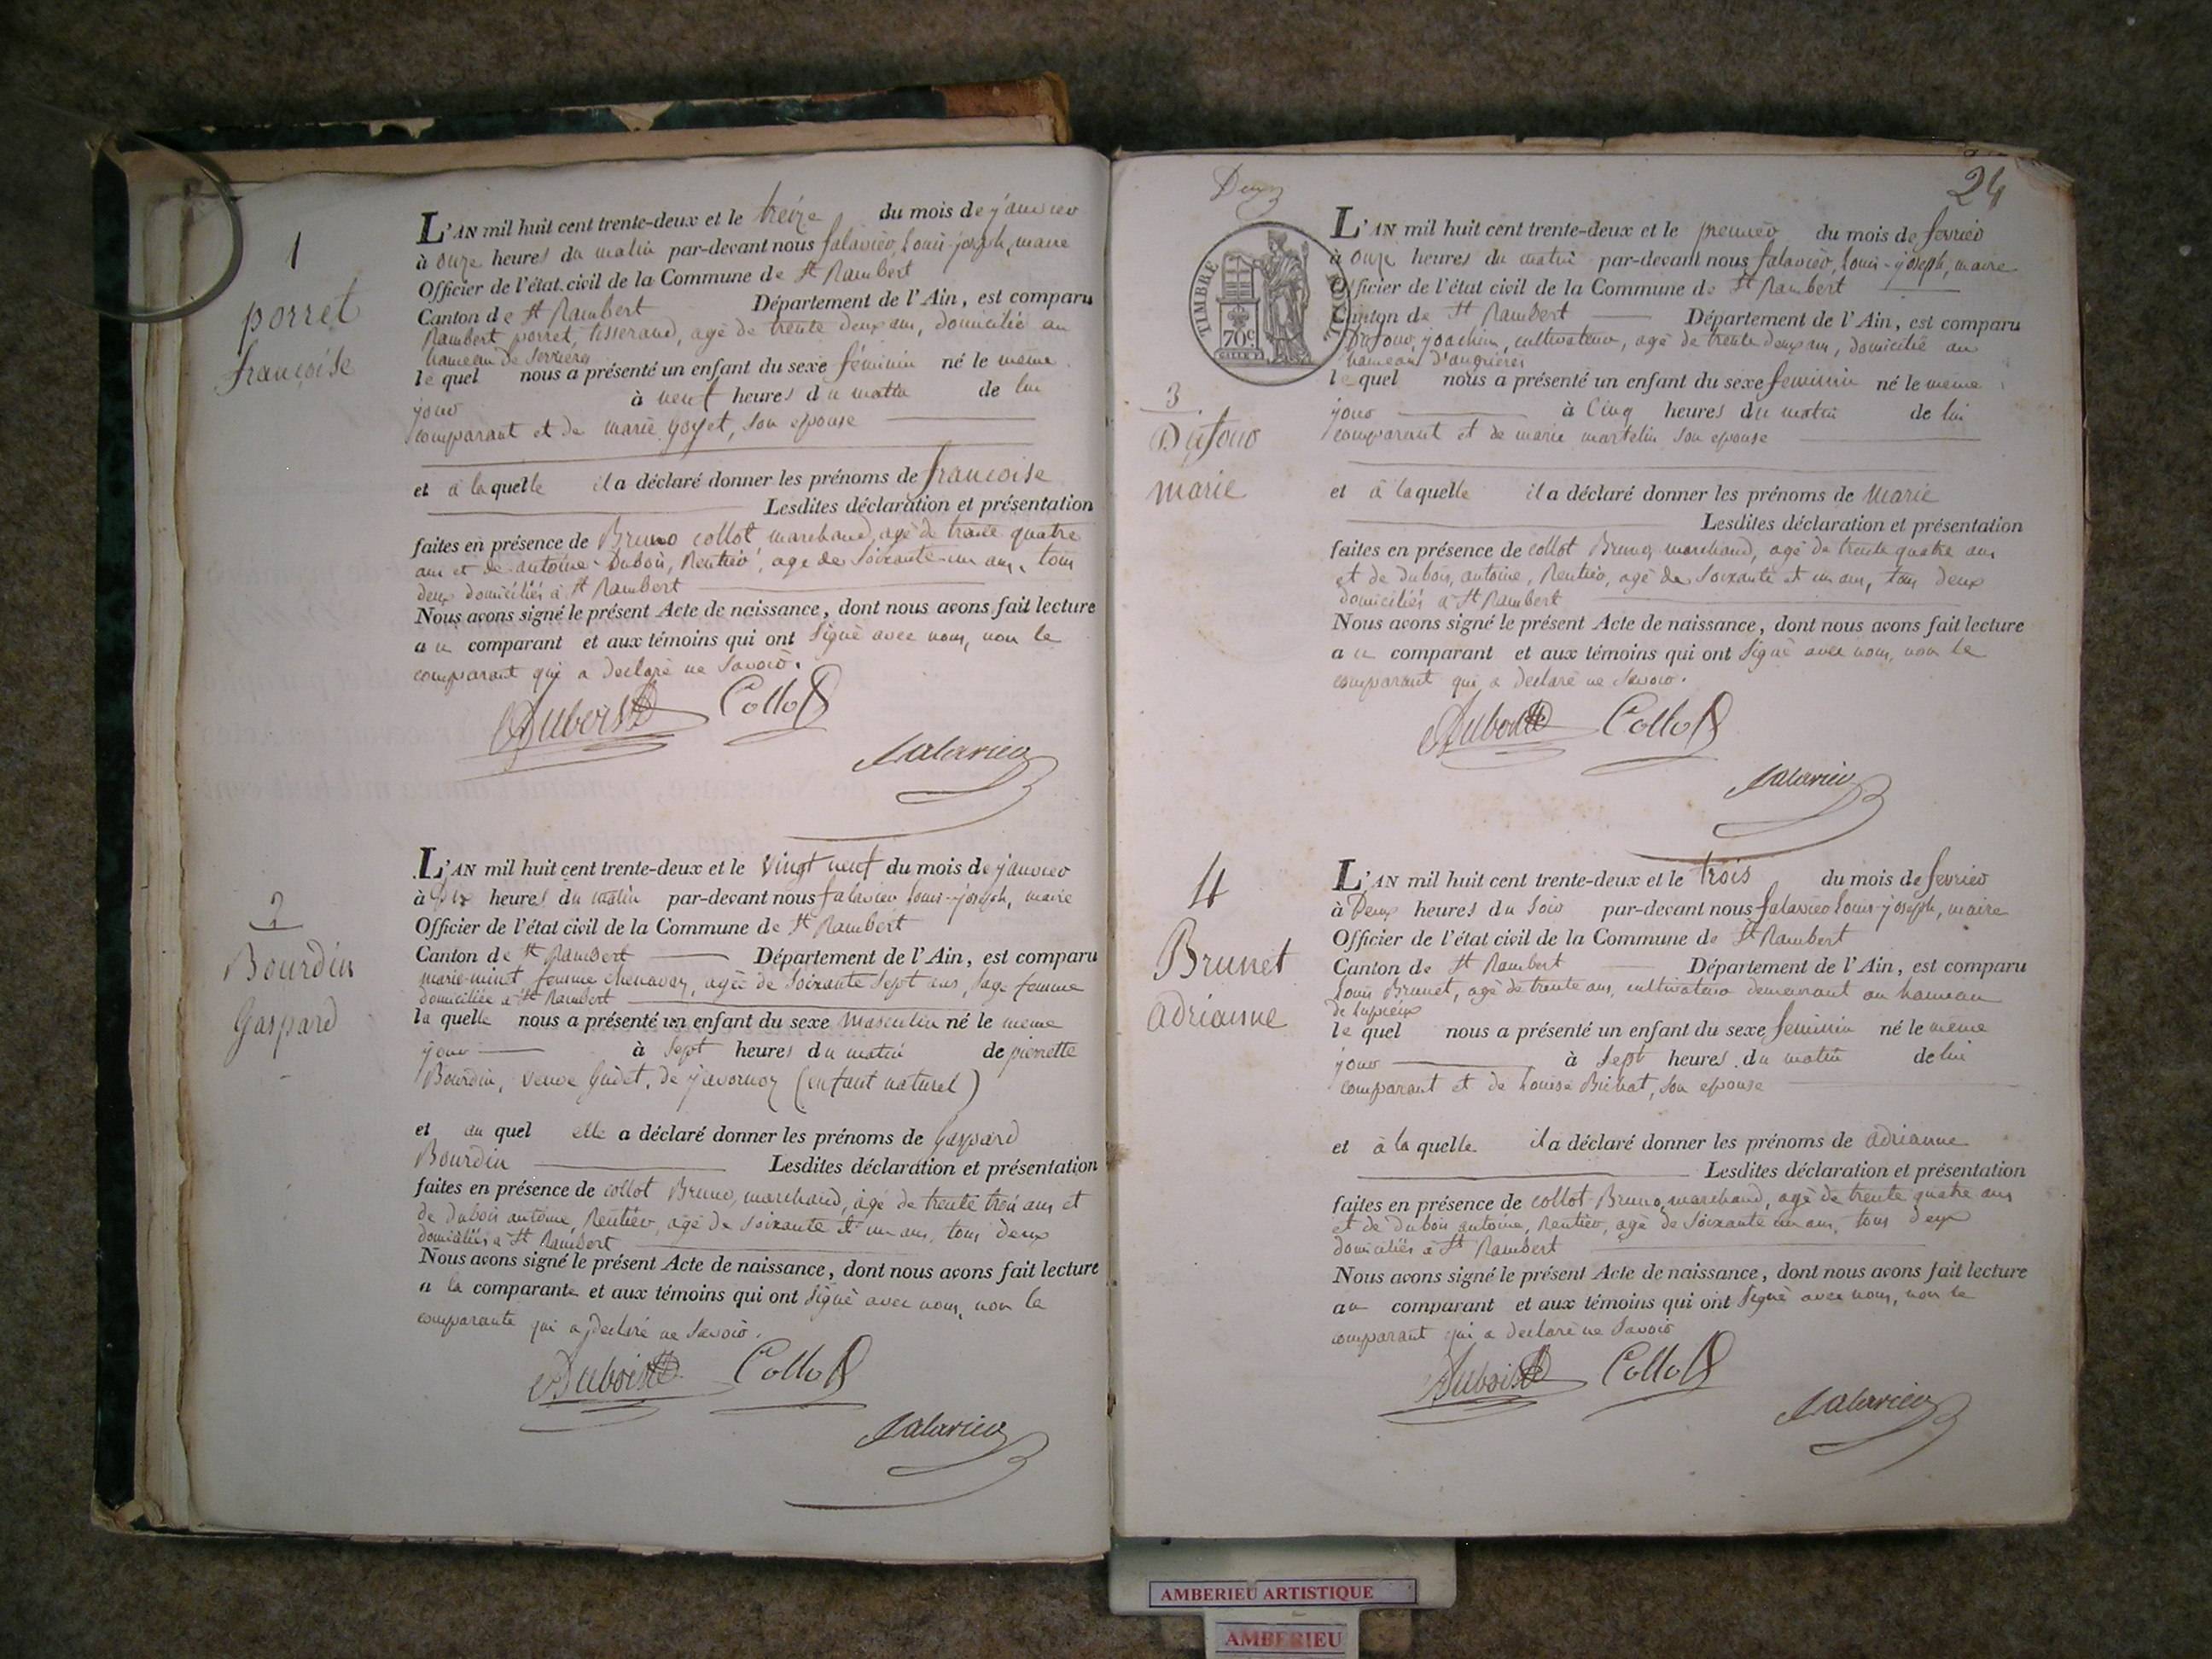 1
porret
françoise
L'AN mil huit cent trente-deux et le treize du mois de janvier
à onze heures du matin par-devant nous falavier, louis-joseph, maire
Officier de l'état civil de la Commune de St Rambert
Canton de St Rambert Département de l'Ain, est comparu
Rambert porret, tisserand, agé de trente deux ans, domicilié au
hameau de Serrières
le quel nous a présenté un enfant du sexe féminin né le même
jour à neuf heures du matin de lui
comparant et de marie goyet, son epouse
et à la quelle il a déclaré donner les prénoms de françoise
Lesdites déclaration et présentation
faites en présence de Bruno collot marchand, agé de trente quatre
ans et de antoine Dubois, Rentier, agé de Soixante-un ans, tous
deux domiciliés à St Rambert
Nous avons signé le présent Acte de naissance, dont nous avons fait lecture
au comparant et aux témoins qui ont Signé avec nous, non le
comparant qui a declaré ne Savoir.
Dubois Collot
falavier
2
Bourdin
Gaspard
L'AN mil huit cent trente-deux et le vingt neuf du mois de janvier
à Dix heures du matin par-devant nous falavier louis-joseph, maire
Officier de l'état civil de la Commune de St Rambert
Canton de St Rambert Département de l'Ain, est comparu
marie minet femme chenavay, agée de Soixante Sept ans, Sage femme
domiciliée à St Rambert
la quelle nous a présenté un enfant du sexe masculin né le meme
jour à Sept heures du matin de pierrette
Bourdin, veuve Gudet, de javornoz (enfant naturel)
et au quel elle a déclaré donner les prénoms de Gaspard
Bourdin Lesdites déclaration et présentation
faites en présence de collot Bruno, marchand, agé de trente trois ans et
de Dubois antoine, Rentier, agé de Soixante et un ans, tous deux
domiciliés à St Rambert
Nous avons signé le présent Acte de naissance, dont nous avons fait lecture
a la comparante et aux témoins qui ont Signé avec nous, non la
comparante qui a declaré ne Savoir.
Dubois Collot
falavier
Deux
24
TIMBRE ROYAL
70c
3
Dufour
marie
L'AN mil huit cent trente-deux et le premier du mois de fevrier
à onze heures du matin par-devant nous falavier, louis-joseph, maire
Officier de l'état civil de la Commune de St Rambert
Canton de St Rambert Département de l'Ain, est comparu
Dufour, joachim, cultivateur, agé de trente deux ans, domicilié au
hameau d'angrières
le quel nous a présenté un enfant du sexe feminin né le même
jour à Cinq heures du matin de lui
comparant et de marie martelin son epouse
et à la quelle il a déclaré donner les prénoms de marie
Lesdites déclaration et présentation
faites en présence de collot Bruno, marchand, agé de trente quatre ans
et de Dubois, antoine, Rentier, agé de Soixante et un ans, tous deux
domiciliés à St Rambert
Nous avons signé le présent Acte de naissance, dont nous avons fait lecture
au comparant et aux témoins qui ont Signé avec nous, non le
comparant qui a declaré ne Savoir.
Dubois Collot
falavier
4
Brunet
adrianne
L'AN mil huit cent trente-deux et le trois du mois de fevrier
à Deux heures du Soir par-devant nous falavier Louis-joseph, maire
Officier de l'état civil de la Commune de St Rambert
Canton de St Rambert Département de l'Ain, est comparu
Louis Brunet, agé de trente ans, cultivateur demeurant au hameau
de lupieux
le quel nous a présenté un enfant du sexe feminin né le même
jour à Sept heures du matin de lui
comparant et de Louise Bichat, son epouse
et à la quelle il a déclaré donner les prénoms de adrianne
Lesdites déclaration et présentation
faites en présence de collot Bruno, marchand, agé de trente quatre ans
et de Dubois antoine, Rentier, agé de Soixante un ans, tous deux
domiciliés à St Rambert
Nous avons signé le présent Acte de naissance, dont nous avons fait lecture
au comparant et aux témoins qui ont Signé avec nous, non le
comparant qui a declaré ne Savoir
Dubois Collot
falavier
AMBERIEU ARTISTIQUE
AMBERIEU